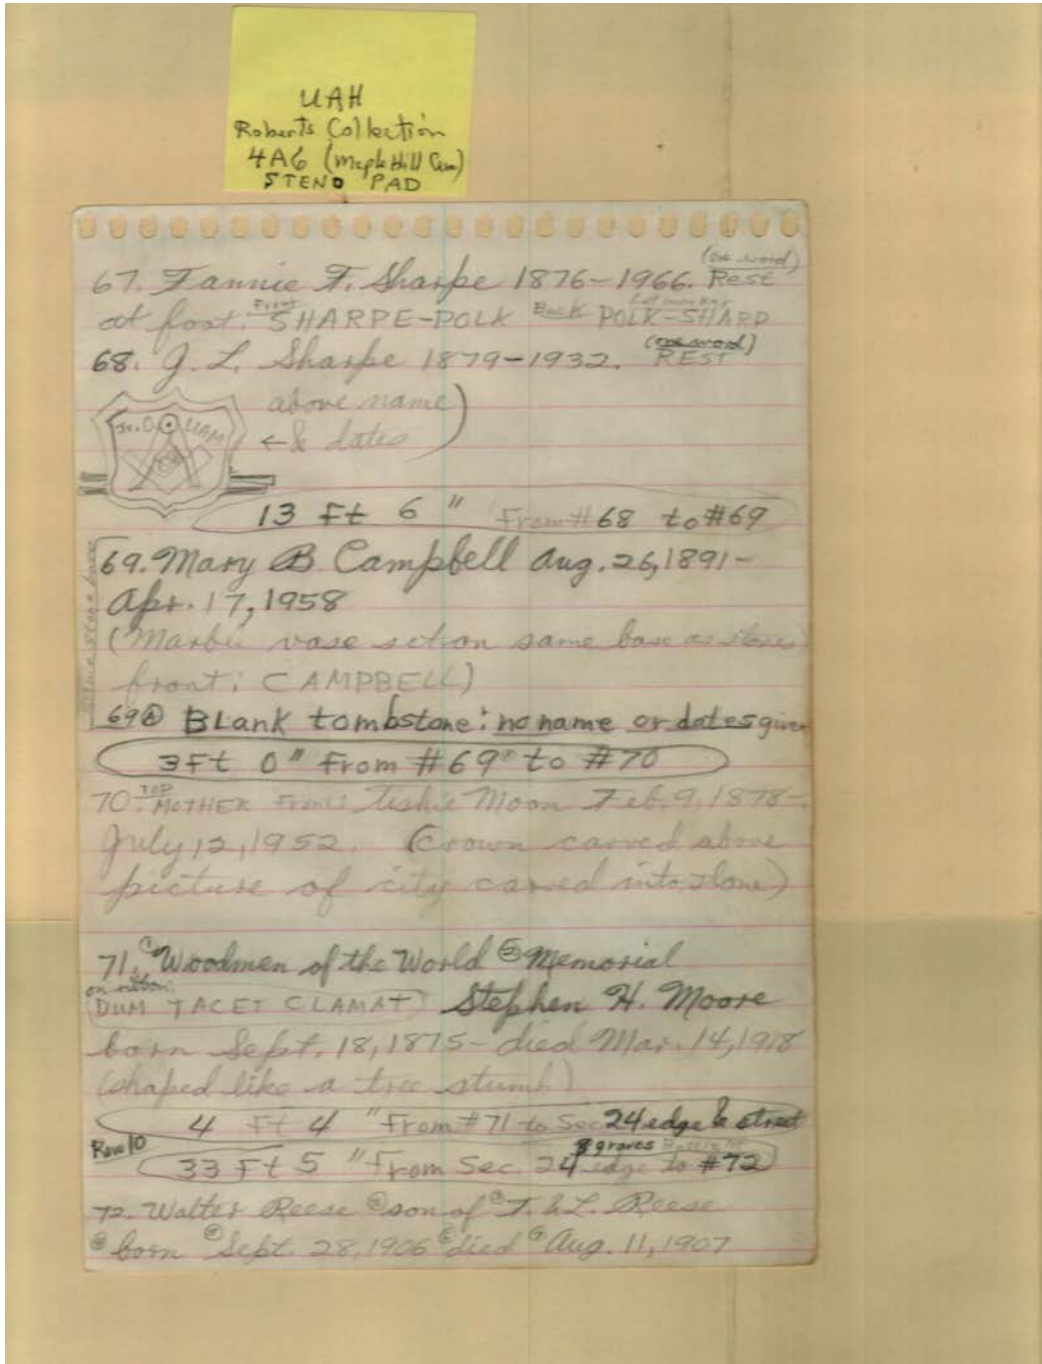 UAH
Roberts Collection
4A6 (Maple Hill Cem)
STENO PAD
(one word)
67. Fannie F. Sharpe 1876-1966. Rest
at foot: Front SHARPE-POLK Back Lot marker POLK-SHARP
(one word)
68. J. L. Sharpe 1879-1932. REST
above name)
Jr. O. UAM
← & dates
13 Ft 6 " From #68 to #69
69. Mary B. Campbell Aug. 26, 1891-
Apr. 17, 1958
(Marble vase set on same base as stone
front: CAMPBELL)
69Ⓐ BLank tombstone: no name or dates given
3Ft 0" From #69 to #70
70. TOP MOTHER Front: Teshie Moon Feb. 9, 1878-
July 12, 1952. (Crown carved above
picture of city carved into stone)
71. ①Woodmen of the World ②Memorial
on ribbon:
(DUM TACET CLAMAT) Stephen H. Moore
born Sept. 18, 1875- died Mar. 14, 1918
(shaped like a tree stump)
4 Ft 4 " From #71 to Sec 24 edge & street
Row 10
8 graves
33 Ft 5 " From Sec. 24 edge to #72
72. Walter Reese son of T. & L. Reese
born Sept. 28, 1906 died Aug. 11, 1907